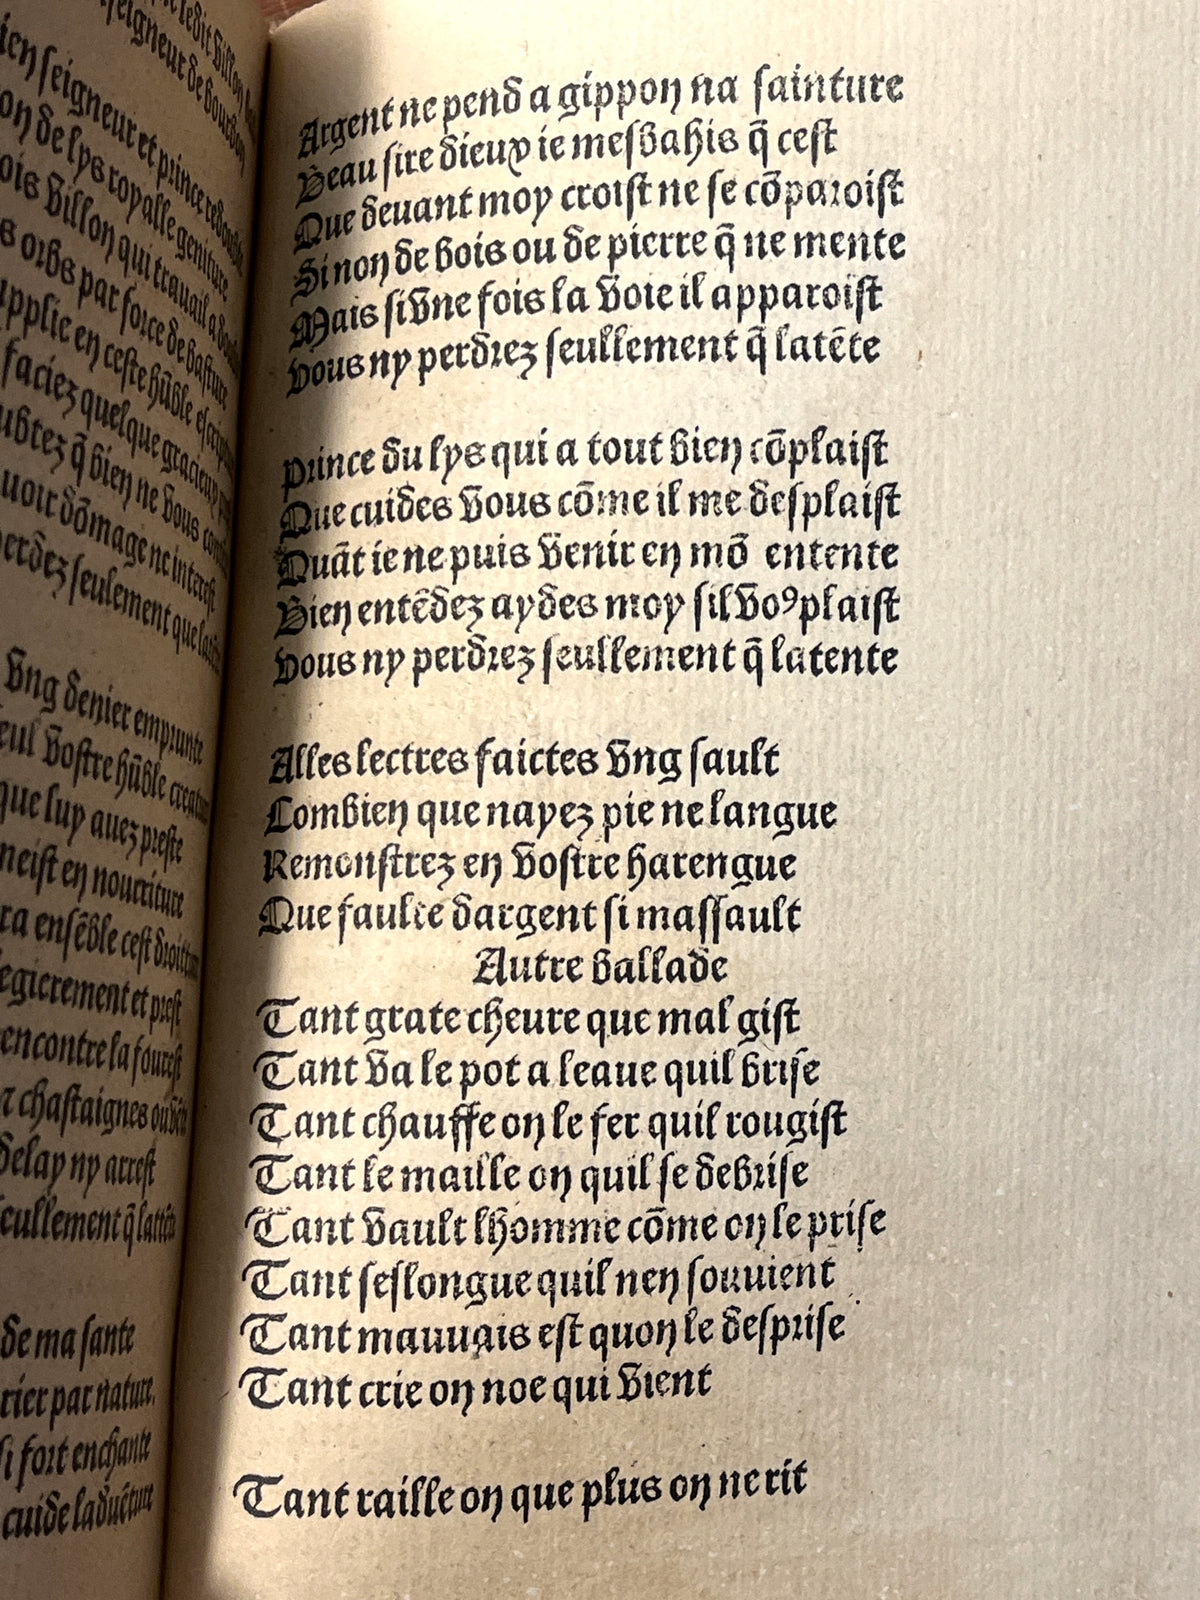 ledit Villon
seigneur de bourbon
seigneur et prince redoubte
de lys royalle geniture
Villon qui travail a
orbs par force de basture
en ceste hūble
faciez quelque gracieux
q̄ bien ne vous
dōmage ne interest
perdez seulement que
vng denier emprunte
vostre hūble creature
que luy auez preste
en nourriture
ensēble cest
et prest
encontre la fourest
chastaignes ou
delay ny arrest
seullement q̄
de ma sante
par nature.
si fort enchante
cuide
Argent ne pend a gippon na sainture
Beau sire dieux ie mesbahis q̄ cest
Que deuant moy croist ne se cōparoist
Sinon de bois ou de pierre q̄ ne mente
Mais si vne fois la voie il apparoist
Vous ny perdrez seullement q̄ latēte
Prince du lys qui a tout bien cōplaist
Que cuides vous cōme il me desplaist
Quāt ie ne puis venir en mō entente
Bien entēdez aydes moy sil voꝯ plaist
Vous ny perdrez seullement q̄ latente
Alles lectres faictes vng sault
Combien que nayez pie ne langue
Remonstrez en vostre harengue
Que faulte dargent si massault
Autre ballade
Tant grate cheure que mal gist
Tant va le pot a leaue quil brise
Tant chauffe on le fer quil rougist
Tant le maille on quil se debrise
Tant vault lhomme cōme on le prise
Tant seslongue quil nen souuient
Tant mauuais est quon le desprise
Tant crie on noe qui vient
Tant raille on que plus on ne rit